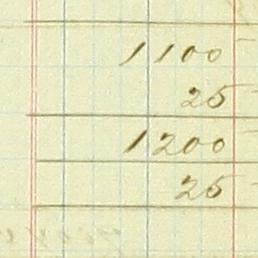 1100
25
1200
25